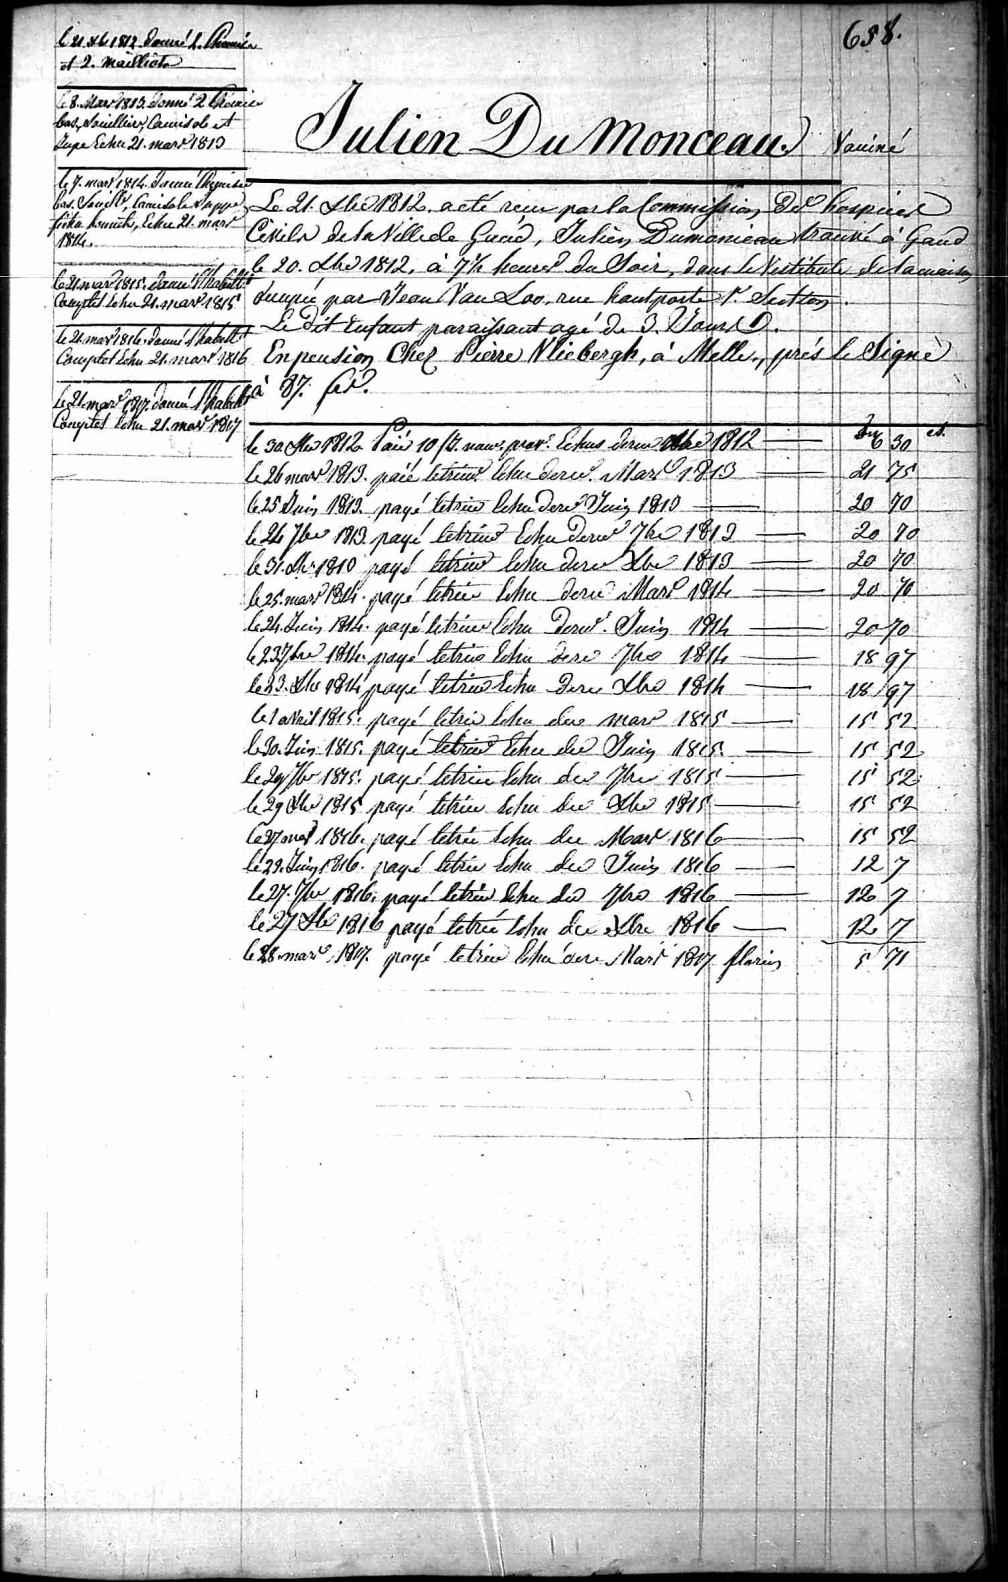 658.
le 21 Xb 1812 donné 2. Chemise
et 2. maillots
le 8. Mars 1813. donné 2 Chemise
bas, Soullier, Camisole et
Jupe Echu 21. mars 1813
le 7. mars 1814. donné Chemise
bas. Camisole Juppe
Echu 21. mars
1814.
le 21 mars 1815. donné l'habillt
Complet Echu 21. mars 1815
le 21. mars 1816. donné l'habillt
Complet Echu 21. mars 1816
le 21. mars 1817. donné l'habillt
Complet Echu 21. mars 1817
Julien Du Monceau. Vaciné
Le 21. Xbre 1812. acté reçu par la Commission Des hospices
Civils de la Ville de Gand, Julien Dumonceau trouvé à Gand
le 20. Xbre 1812, à 7½ heures du Soir, dans le Vestibule de la maison
occupée par Jean Van Loo, rue hautporte 1e. Section.
Le dit Enfant paraissant agé de 3. Jours.
En pension Chez Pierre Vliebergh, à Melle, prés le Signe
à 87. frs.
le 30 Xbre 1812 Paié 10 Echus 1812 — 6 30
le 26 mars 1813. paié letrim Echu Mars 1813 — 21 75
le 25 Juin 1813. payé letrim Echu Juin 1813 — 20 70
le 24 7bre 1813. payé letrim Echu 7bre 1813 — 20 70
le 31. Xbre 1813 payé letrim Echu Xbre 1813 — 20 70
le 25. mars 1814. payé letrim Echu Mars 1814 — 20 70
le 24. Juin 1814. payé letrim Echu Juin 1814 — 20 70
le 23 7bre 1814. payé letrim Echu 7bre 1814 — 18 97
le 23. Xbre 1814 payé letrim Echu Xbre 1814 — 18 97
le 1 avril 1815. payé letrim Echu du mars 1815 — 15 52
le 30. Juin 1815. payé letrim Echu du Juin 1815. — 15 52
le 29 7bre 1815. payé letrim Echu du 7bre 1815 — 15 52
le 29 Xbre 1815 payé letrim Echu du Xbre 1815 — 15 52
le 27 mars 1816. payé letrim Echu du Mars 1816 — 15 52
le 29. Juin 1816. payé letrim Echu du Juin 1816 — 12 7
le 27. 7bre 1816. payé letrim Echu du 7bre 1816 — 12 7
le 27 Xbre 1816 payé letrim Echu du Xbre 1816 — 12 7
le 28. mars 1817. payé letrim Echu Mars 1817 florins 5 71